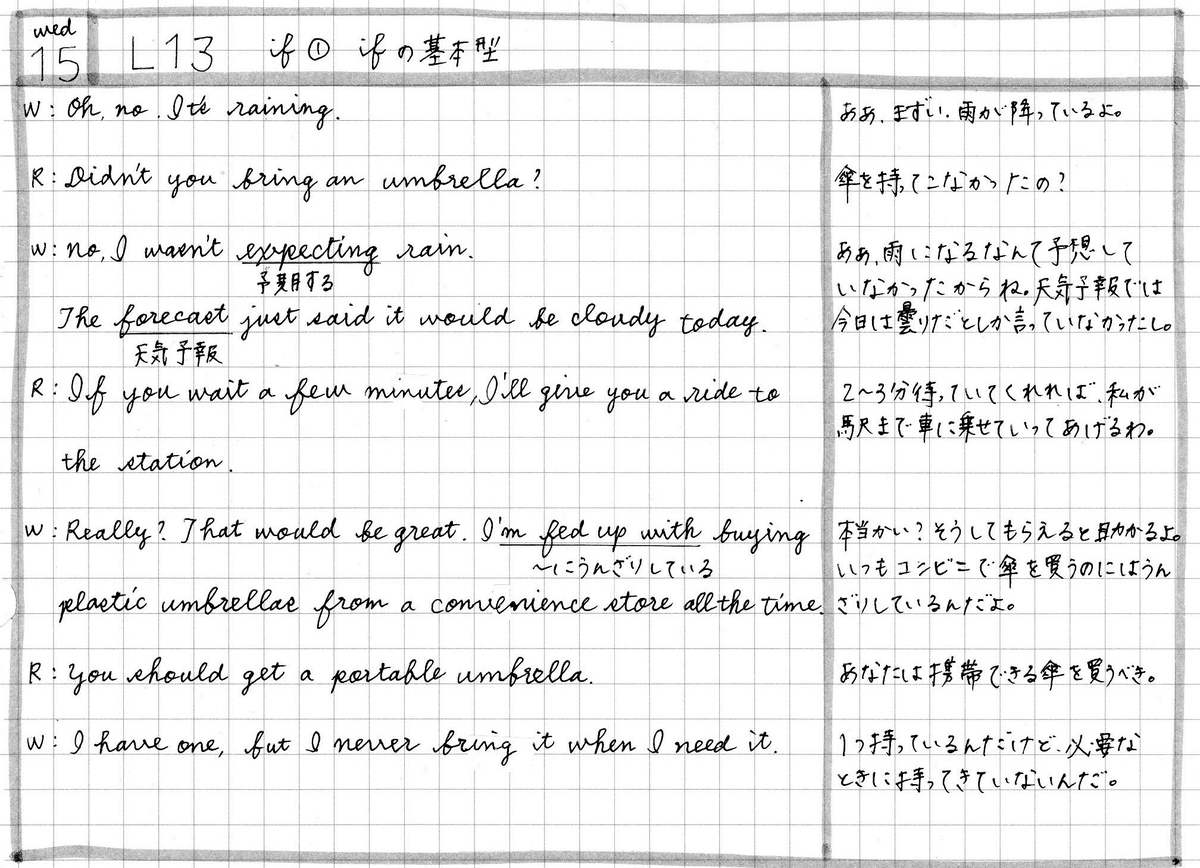 wed
15 L13 if ① ifの基本型
W: Oh, no. It's raining.
ああ、まずい、雨が降っているよ。
R: Didn't you bring an umbrella?
傘を持ってこなかったの?
W: no, I wasn't expecting rain.
予期する
ああ、雨になるなんて予想して
いなかったからね。天気予報では
今日は曇りだとしか言っていなかったし。
The forecast just said it would be cloudy today.
天気予報
R: If you wait a few minutes, I'll give you a ride to
the station.
2〜3分待っていてくれれば、私が
駅まで車に乗せていってあげるわ。
W: Really? That would be great. I'm fed up with buying
〜にうんざりしている
plastic umbrellas from a convenience store all the time.
本当かい?そうしてもらえると助かるよ。
いつもコンビニで傘を買うのにはうん
ざりしているんだよ。
R: You should get a portable umbrella.
あなたは携帯できる傘を買うべき。
W: I have one, but I never bring it when I need it.
1つ持っているんだけど、必要な
ときに持ってきていないんだ。